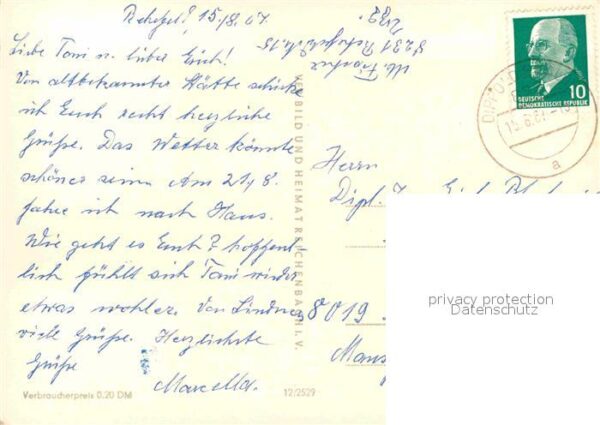 Rehefeld, 15./8. 67
Liebe Toni u. lieber Erich!
Von altbekannter Stätte schicke
ich Euch recht herzliche
Grüße. Das Wetter könnte
schöner sein. Am 21./8.
fahre ich nach Haus.
Wie geht es Euch? hoffent-
lich fühlt sich Toni wieder
etwas wohler. Von Lindners
viele Grüße. Herzlichste
Grüße
Marcella.
Verbraucherpreis 0,20 DM
12/2529
VERLAG BILD UND HEIMAT REICHENBACH I. V.
Abs. Fischer
9231 Rehefeld Nr. 15
Erzgb.
10
DEUTSCHE
DEMOKRATISCHE REPUBLIK
a
Herrn
Dipl.
8019
privacy protection
Datenschutz